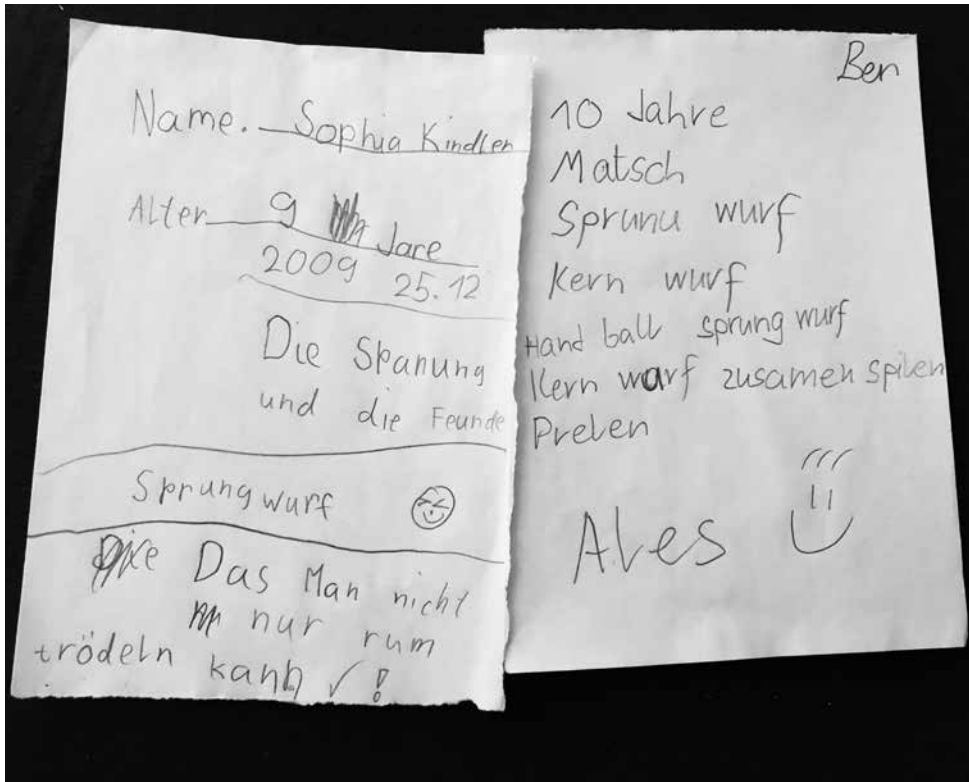 Name. Sophia Kindler
Alter 9 Jare
2009 25.12
Die Spanung
und die Feunde
Sprungwurf
Das Man nicht
nur rum
trödeln kann ✓ !
Ben
10 Jahre
Matsch
Sprunu wurf
Kern wurf
Hand ball sprung wurf
Kern warf zusamen spilen
Prelen
Ales